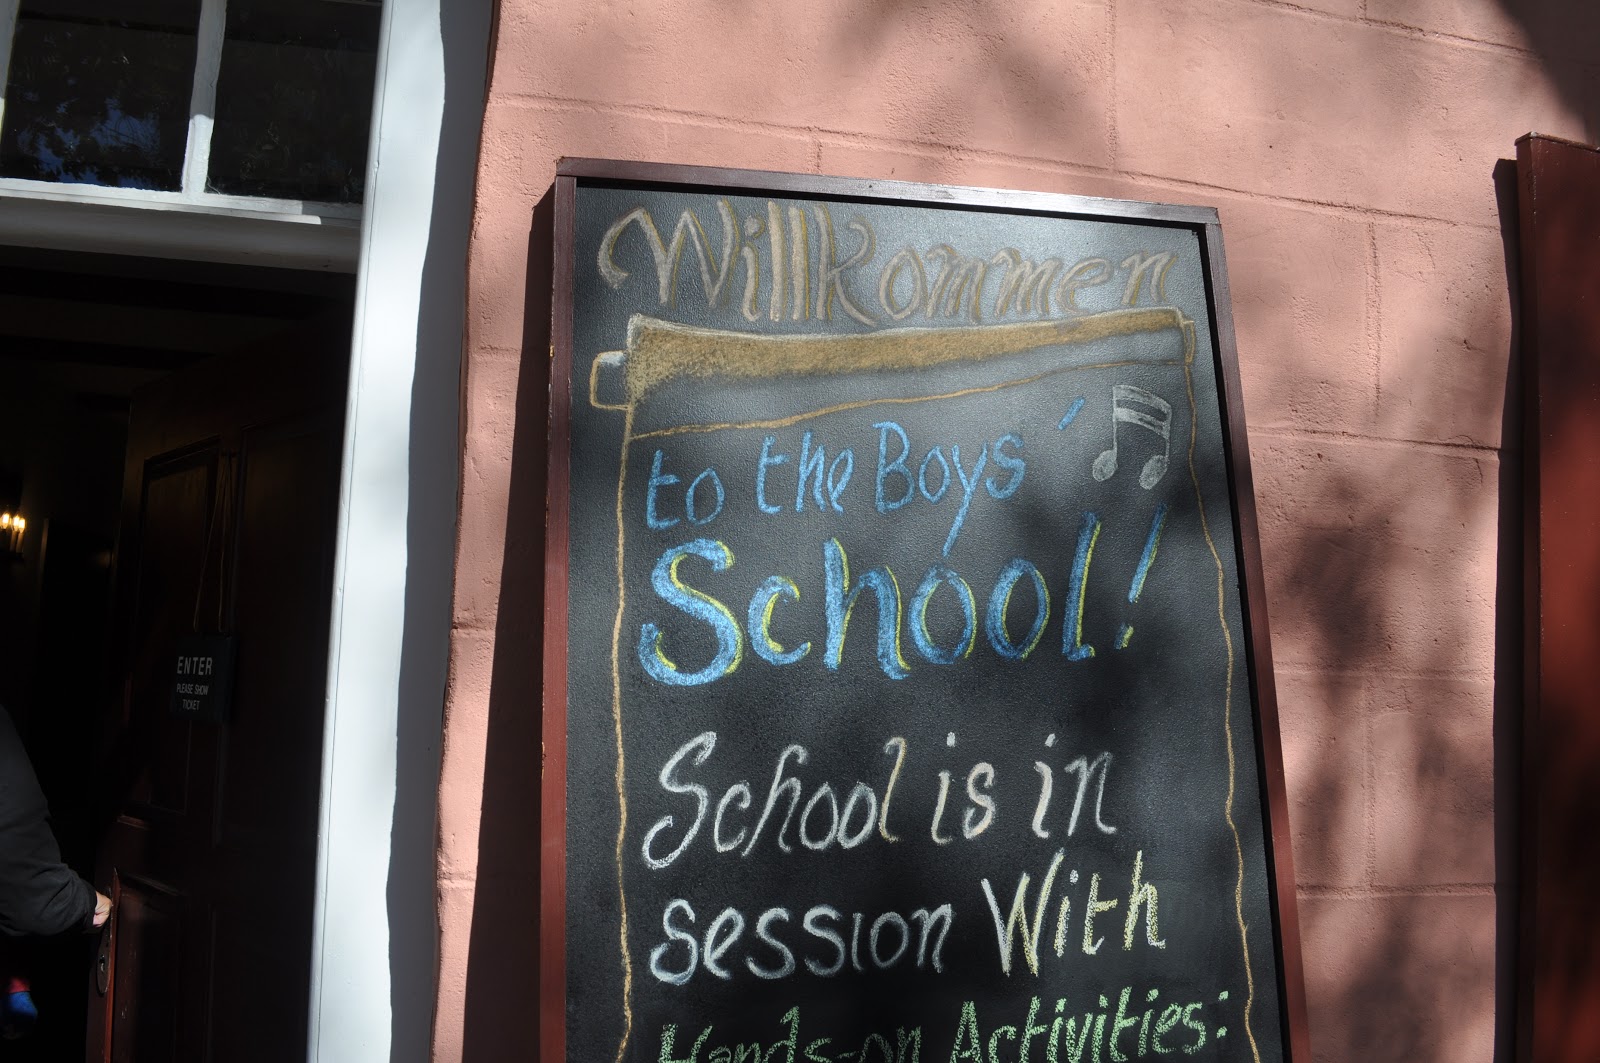 Willkommen
to the Boys'
School!
School is in
session With
Hands-on Activities:
ENTER
PLEASE SHOW
TICKET